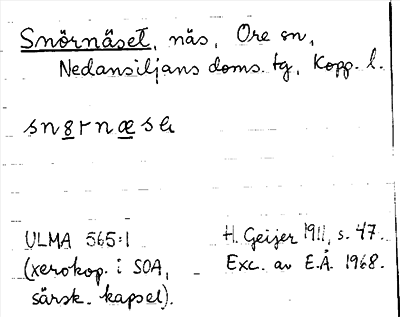 Snörnäset, näs, Ore sn,
Nedansiljans doms. tg, Kopp. l.
sn8rnæsh
ULMA 565:1
(xerokop. i SOA,
särsk. kapsel).
H. Geijer 1911, s. 47.
Exc. av E.Å. 1968.